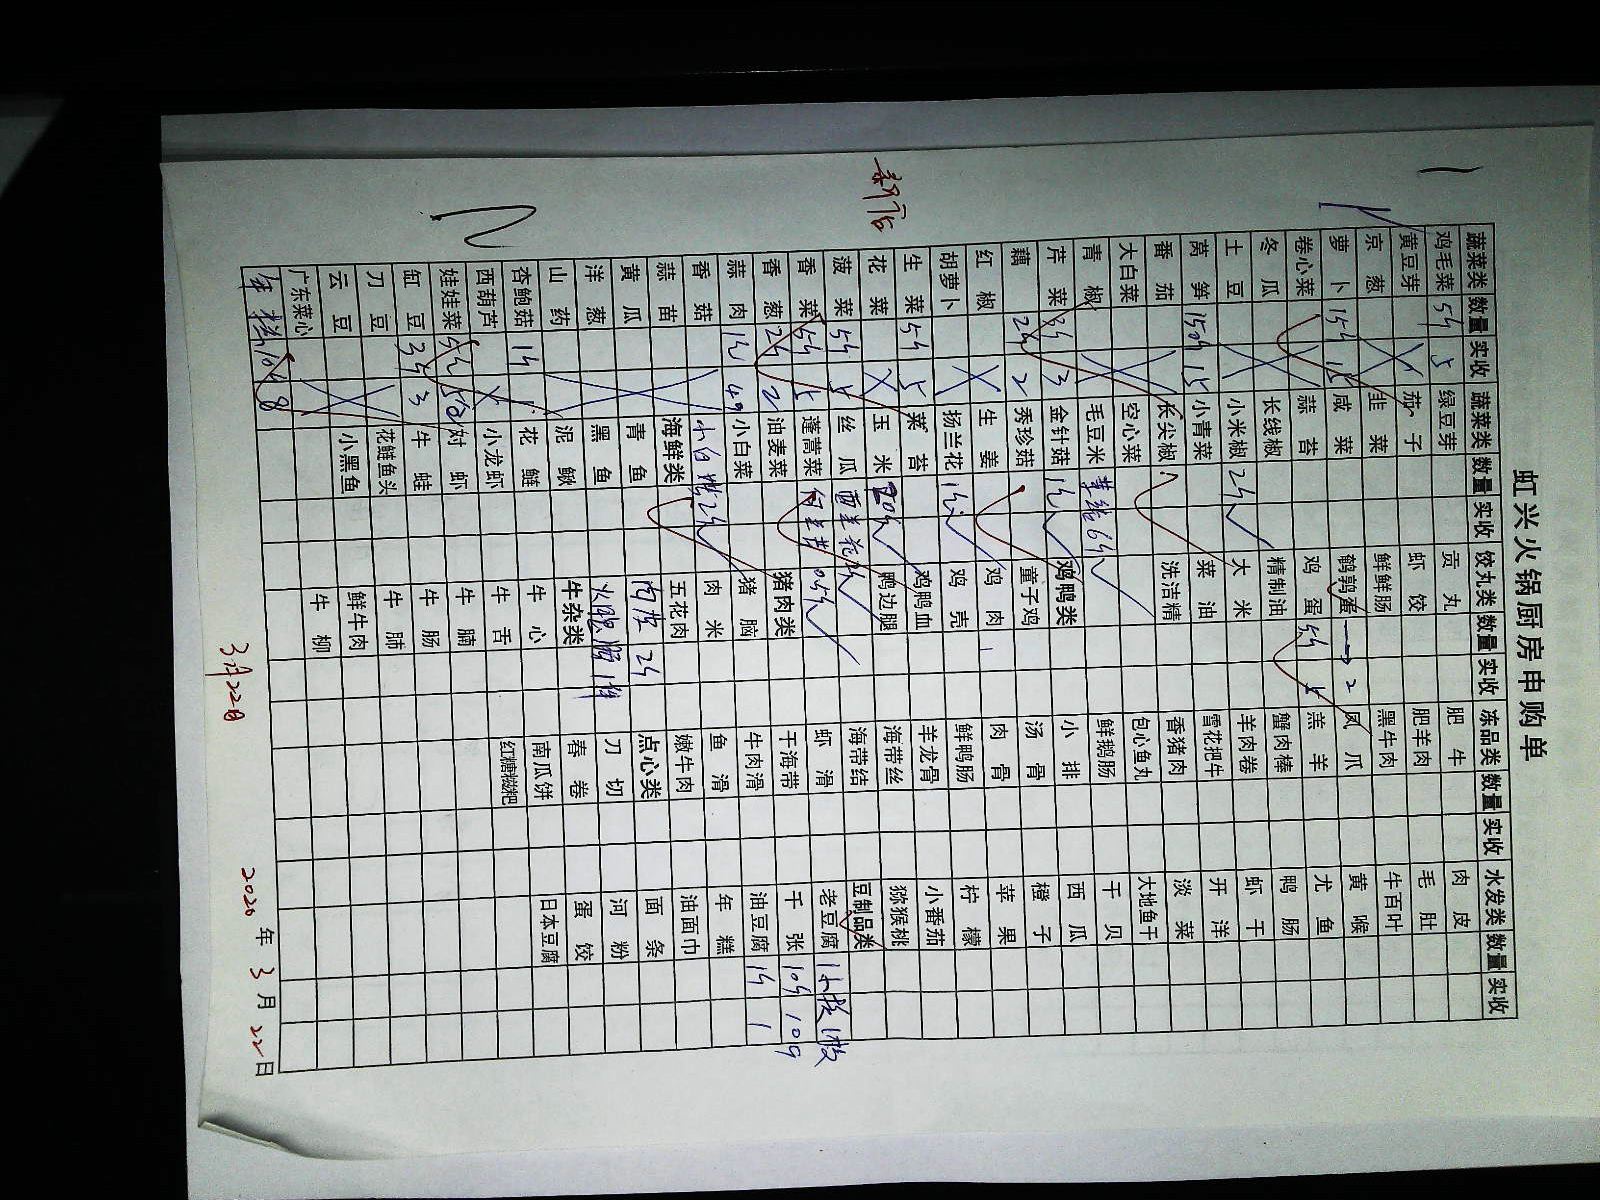 虹兴火锅厨房申购单
新店
蔬菜类 数量 实收 蔬菜类 数量 实收 饺丸类 数量 实收 冻品类 数量 实收 水发类 数量 实收
鸡毛菜 5斤 5 绿豆芽 贡丸 肥牛 肉皮
黄豆芽 茄子 虾饺 肥羊肉 毛肚
京葱 韭菜 鲜鲜肠 黑牛肉 牛百叶
萝卜 15斤 15 咸菜 鹌鹑蛋 2 凤爪 黄喉
卷心菜 蒜苔 鸡蛋 5斤 5 羔羊 尤鱼
冬瓜 长线椒 精制油 蟹肉棒 鸭肠
土豆 小米椒 2斤 大米 羊肉卷 虾干
莴笋 15斤 15 小青菜 菜油 雪花把牛 开洋
番茄 长尖椒 洗洁精 香猪肉 淡菜
大白菜 空心菜 包心鱼丸 大地鱼干
青椒 毛豆米 6斤 鲜鹅肠 干贝
芹菜 3斤 3 金针菇 1斤 鸡鸭类 小排 西瓜
藕 2斤 2 秀珍菇 童子鸡 汤骨 橙子
红椒 生姜 鸡肉 肉骨 苹果
胡萝卜 扬兰花 1斤 鸡壳 鲜鸭肠 柠檬
生菜 5斤 5 菜苔 鸡鸭血 羊龙骨 小番茄
花菜 玉米 20斤 鸭边腿 海带丝 猕猴桃
菠菜 5斤 5 丝瓜 海带结 豆制品类
香菜 5斤 5 蓬蒿菜 虾滑 老豆腐 1板
香葱 2斤 2 油麦菜 猪肉类 干海带 千张 10斤 10
蒜肉 1斤 小白菜 猪脑 牛肉滑 油豆腐 1斤 1
香菇 2斤 肉米 鱼滑 年糕
蒜苗 海鲜类 五花肉 嫩牛肉 油面巾
黄瓜 青鱼 肉皮 2斤 点心类 面条
洋葱 黑鱼 火腿肠 1件 刀切 河粉
山药 泥鳅 牛杂类 春卷 蛋饺
杏鲍菇 1斤 花鲢 牛心 南瓜饼 日本豆腐
西葫芦 小龙虾 牛舌 红糖糍粑
娃娃菜 对虾 牛腩
缸豆 3斤 3 牛蛙 牛肠
刀豆 花鲢鱼头 牛肺
云豆 小黑鱼 鲜牛肉
广东菜心 牛柳
10斤 8
3月22日
2020年3月22日